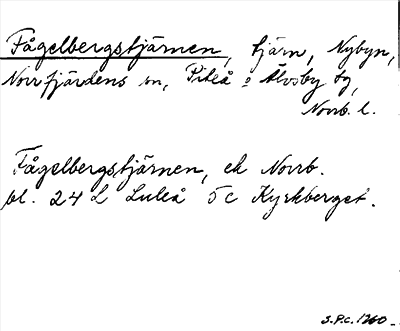 Fågelbergstjärnen, tjärn, Nybyn,
Norrfjärdens sn, Piteå o Älvsby tg,
Norrb. l.
Fågelbergstjärnen, ek Norrb.
bl. 24 L Luleå 5c Kyrkberget.
S.P.C. 1960